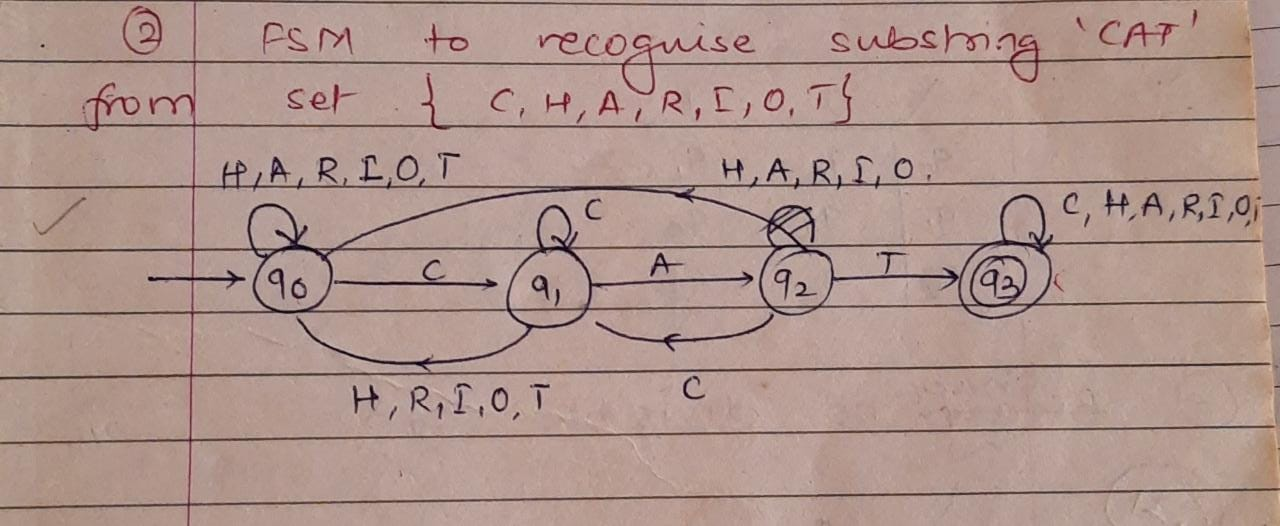 ② FSM to recognise substring 'CAT'
from set { C, H, A, R, I, O, T}
H, A, R, I, O, T H, A, R, I, O.
C C, H, A, R, I, O,
q0 C q1 A q2 T q3
H, R, I, O, T C